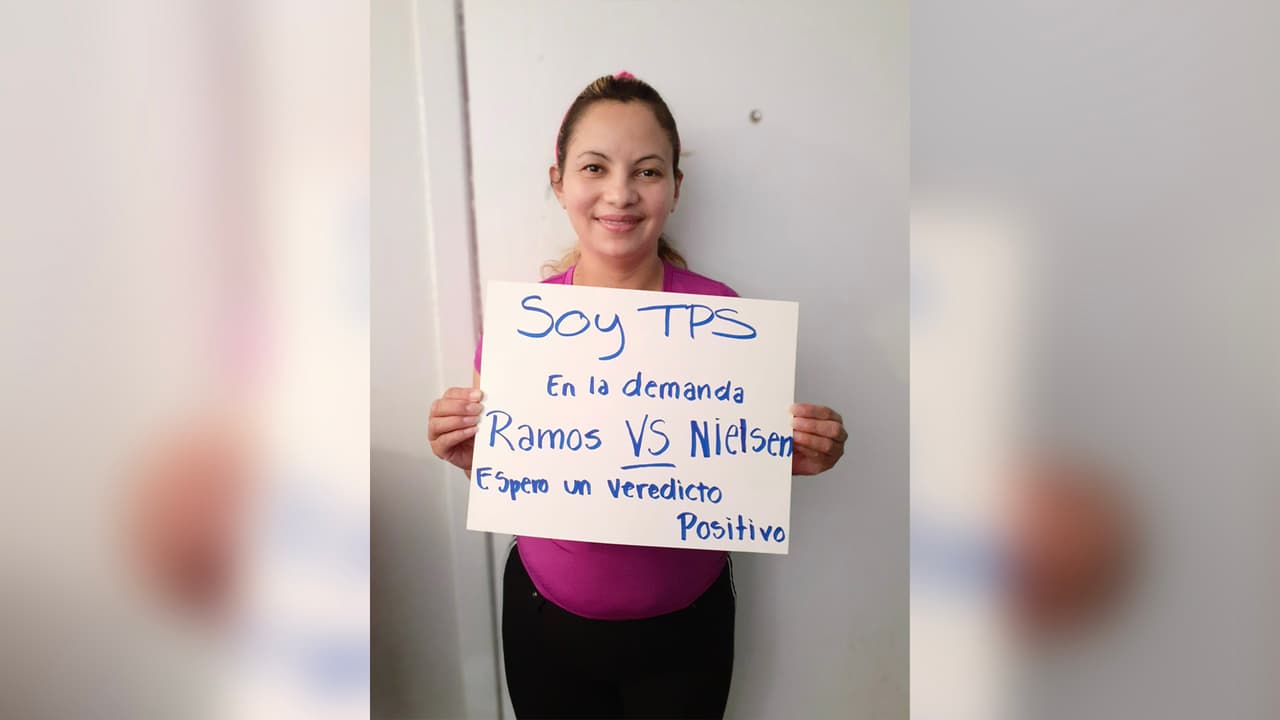 Soy TPS
En la demanda
Ramos VS Nielsen
Espero un veredicto
Positivo